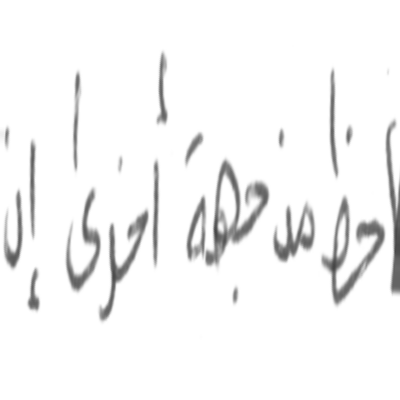 لاحظ من جهة أخرى إن